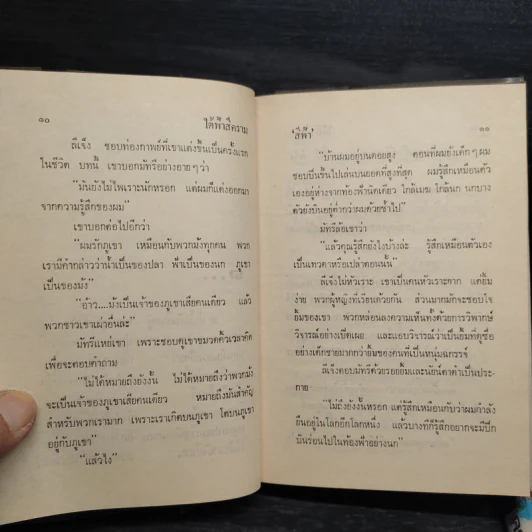 ๑๐
ใต้ฟ้าสีคราม
ลีเจ็ง ชอบท่องกาพย์ที่เขาแต่งขึ้นเป็นครั้งแรก
ในชีวิต บทนี้ เขาบอกมัทรีอย่างอายๆว่า
“มันยังไม่ไพเราะนักหรอก แต่ผมก็แต่งออกมา
จากความรู้สึกของผม”
เขาบอกต่อไปอีกว่า
“ผมรักภูเขา เหมือนกับพวกม้งทุกคน พวก
เรามีคำกล่าวว่าน้ำเป็นของปลา ฟ้าเป็นของนก ภูเขา
เป็นของม้ง”
“อ้าว....ม้งเป็นเจ้าของภูเขาเสียคนเดียว แล้ว
พวกชาวเขาเผ่าอื่นล่ะ”
มัทรีแหย่เขา เพราะชอบดูเขาขมวดคิ้วเวลาคิด
เพื่อจะตอบคำถาม
“ไม่ได้หมายถึงยังงั้น ไม่ได้หมายถึงว่าพวกม้ง
จะเป็นเจ้าของภูเขาเสียคนเดียว หมายถึงมันสำคัญ
สำหรับพวกเรามาก เพราะเราเกิดบนภูเขา โตบนภูเขา
อยู่กับภูเขา”
“แล้วไง”
‘สีฟ้า’
๑๑
“บ้านผมอยู่บนดอยสูง ตอนที่ผมยังเด็กๆผม
ชอบปีนขึ้นไปเล่นบนยอดที่สูงที่สุด ผมรู้สึกเหมือนตัว
เองอยู่ห่างจากท้องฟ้านิดเดียว ใกล้เมฆ ใกล้นก นกบาง
ตัวยังบินอยู่ต่ำกว่าผมด้วยซ้ำไป”
มัทรีล้อเขาว่า
“แล้วคุณรู้สึกยังไงบ้างล่ะ รู้สึกเหมือนตัวเอง
เป็นเทวดาหรือเปล่าตอนนั้น”
ลีเจ็งไม่หัวเราะ เขาเป็นคนหัวเราะยาก แต่ยิ้ม
ง่าย พวกผู้หญิงที่เรียนด้วยกัน ส่วนมากมักจะชอบใจ
ยิ้มของเขา พวกหล่อนลงความเห็นทั้งด้วยการวิพากษ์
วิจารณ์อย่างเปิดเผย และแอบวิจารณ์ว่าเป็นยิ้มที่ดูซื่อ
อย่างเด็กชายมากกว่ายิ้มของคนที่เป็นหนุ่มฉกรรจ์
ลีเจ็งตอบมัทรีด้วยรอยยิ้มและนัยน์ตาดำเป็นประ
กาย
“ไม่ถึงยังงั้นหรอก แต่รู้สึกเหมือนกับว่าผมกำลัง
ยืนอยู่ในโลกอีกโลกหนึ่ง แล้วบางทีก็รู้สึกอยากจะมีปีก
บินร่อนไปในท้องฟ้าอย่างนก”